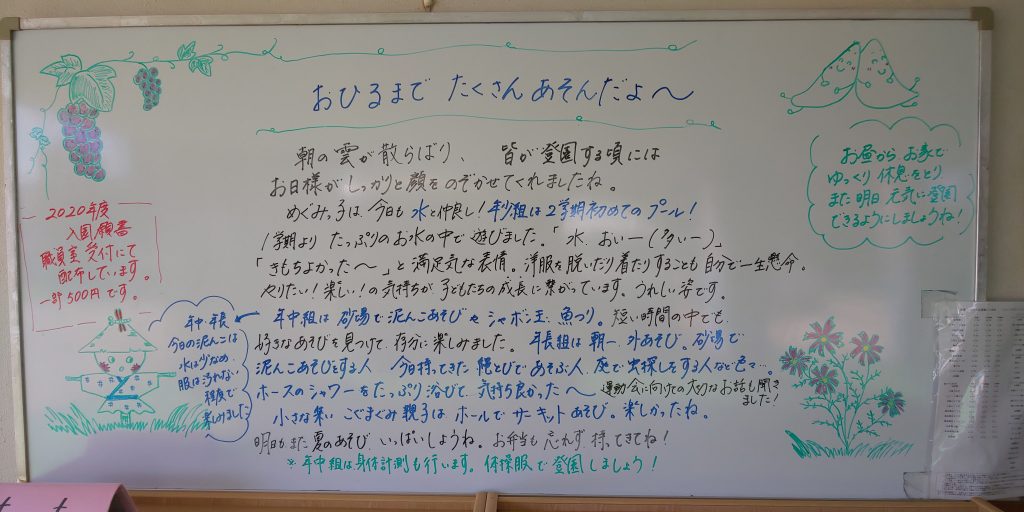 おひるまで たくさん あそんだよ〜
朝の雲が散らばり、 皆が登園する頃には
お日様がしっかりと顔をのぞかせてくれましたね。
めぐみっ子は、今日も水と仲良し！年少組は2学期初めてのプール！
1学期より たっぷりのお水の中で 遊びました。「水、おいー(多いー)」
「きもちよかった〜」と満足気な表情。洋服を脱いだり着たりすることも自分で一生懸命。
やりたい！楽しい！の気持ちが子どもたちの成長に繋がっています。うれしい姿です。
年中組は 砂場で泥んこあそびやシャボン玉、魚つり。短い時間の中でも、
好きなあそびを見つけて、存分に楽しみました。年長組は朝一、外あそび。砂場で
泥んこあそびをする人、今日持ってきた縄とびであそぶ人、庭で虫探しをする人など色々…。
ホースのシャワーをたっぷり浴びて、気持ち良かった〜
運動会に向けての大切なお話も聞き
ました！
小さな集い こぐまぐみ親子は ホールでサーキットあそび。楽しかったね。
明日もまた夏のあそび、いっぱいしようね。お弁当も忘れず持ってきてね！
※年中組は身体計測も行います。体操服で登園しましょう！
2020年度
入園願書
職員室受付にて
配布しています。
一部500円です。
年中・年長
今日の泥んこは
水は少なめ、
服は汚れない
程度で
楽しみました
お昼から、お家で
ゆっくり休息をとり
また明日 元気に登園
できるようにしましょうね！